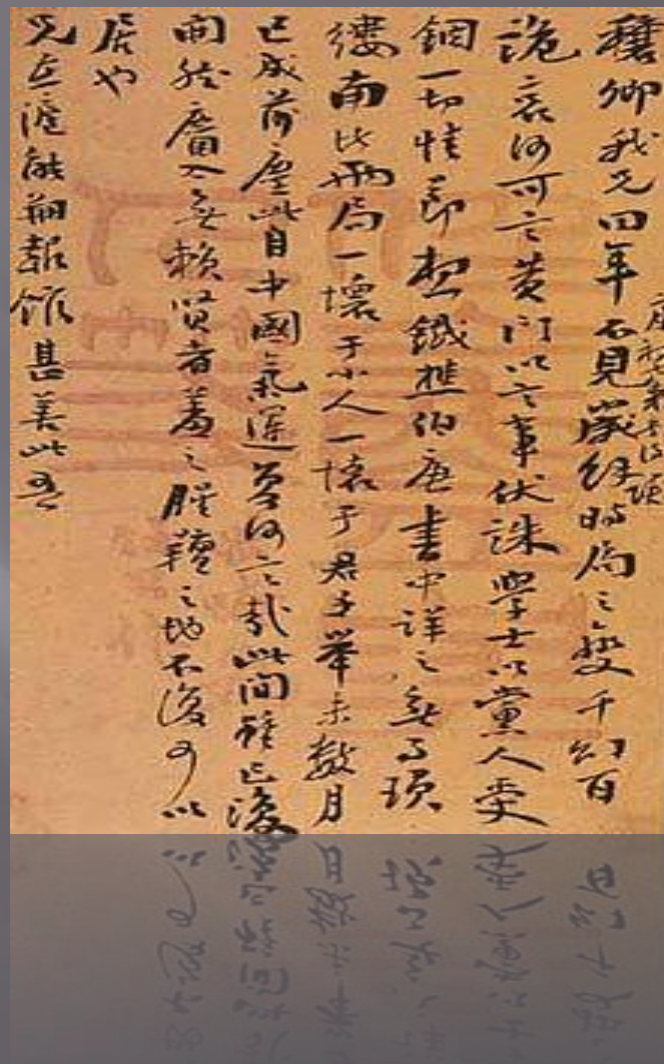 穰卿我兄四年不見歲經時局之變千幻百
詭哀何可言黃門以言事伏誅學士以黨人受
錮一切情節想鐵樵伯唐書中詳之無可瑣
縷南北兩局一壞于小人一壞于君子舉未數月
已成前塵此自中國氣運何言哉此間雖已復
開然麕入無賴賢者羞之腥羶之地不復可以
居也
兄在滬能翔報館甚善此吾